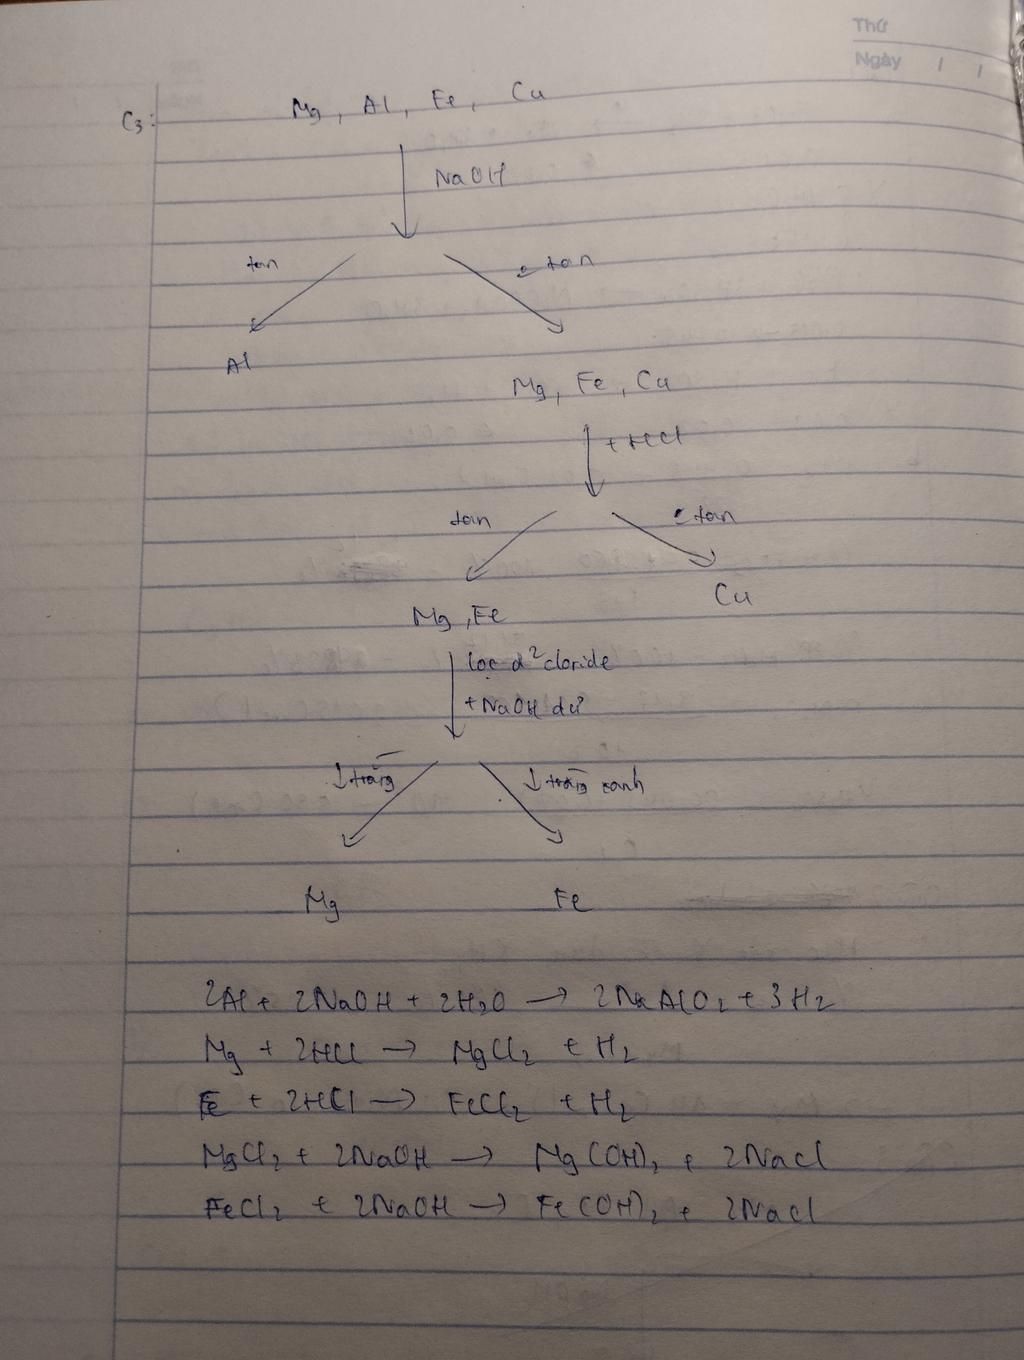 Thứ
Ngày / /
C3: Mg, Al, Fe, Cu
NaOH
tan tan
Al
Mg, Fe, Cu
+ HCl
tan tan
Cu
Mg, Fe
lọc d² cloride
+ NaOH dư
↓ trắng ↓ xanh
Mg Fe
2Al + 2NaOH + 2H2O → 2NaAlO2 + 3H2
Mg + 2HCl → MgCl2 + H2
Fe + 2HCl → FeCl2 + H2
MgCl2 + 2NaOH → Mg(OH)2 + 2NaCl
FeCl2 + 2NaOH → Fe(OH)2 + 2NaCl